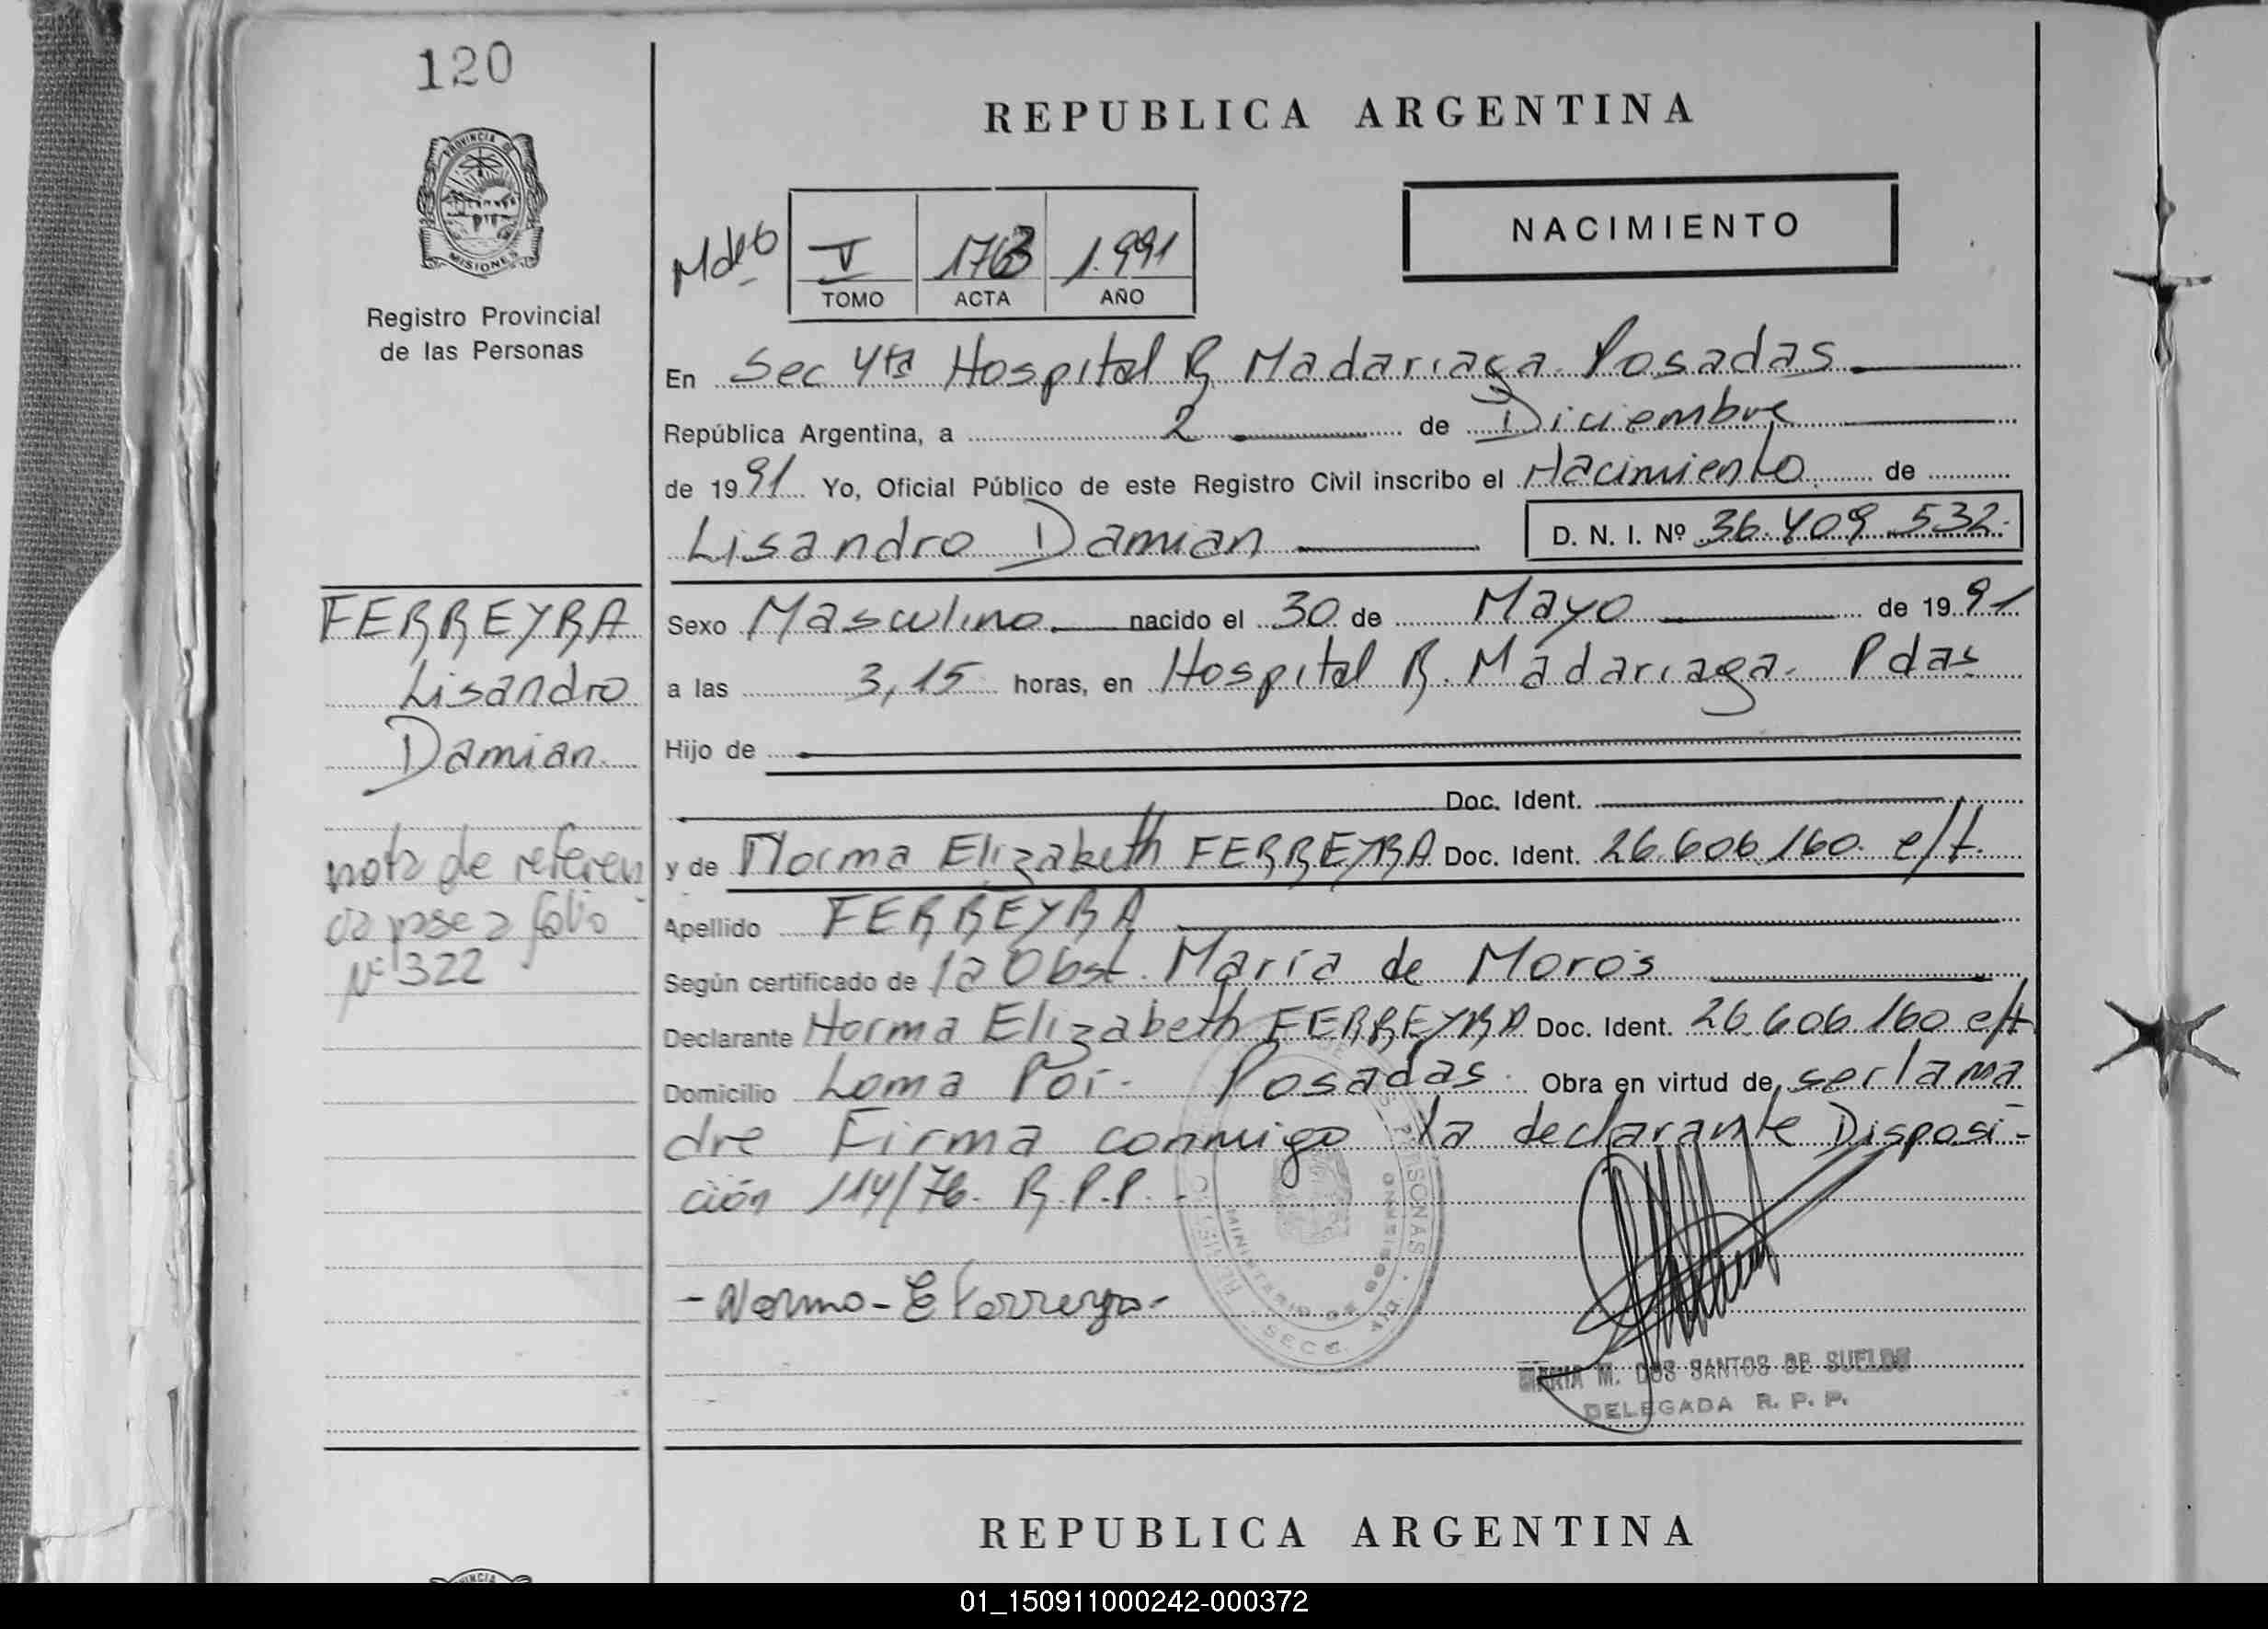 120
PROVINCIA DE
MISIONES
Registro Provincial
de las Personas
REPUBLICA ARGENTINA
NACIMIENTO
V 1763 1.991
TOMO ACTA AÑO
En Sec 4ta Hospital R Madariaga Posadas
República Argentina, a 2 de Diciembre
de 1991 Yo, Oficial Público de este Registro Civil inscribo el Nacimiento de
Lisandro Damian D. N. I. Nº 36.409.532.
FERREYRA
Lisandro
Damian.
nota de referen
cia pase a folio
Nº 322
Sexo Masculino nacido el 30 de Mayo de 1991
a las 3,15 horas, en Hospital R. Madariaga. Pdas
Hijo de
Doc. Ident.
y de Norma Elizabeth FERREYRA Doc. Ident. 26.606.160 e/t.
Apellido FERREYRA
Según certificado de la Obst. María de Moros
Declarante Norma Elizabeth FERREYRA Doc. Ident. 26.606.160 e/t
Domicilio Loma Poí. Posadas. Obra en virtud de ser la ma
dre Firma conmigo la declarante Disposi-
ción 114/76. R.P.P.
- Norma - E Ferreyra -
MARIA M. DOS SANTOS DE SUELDO
DELEGADA R. P. P.
REPUBLICA ARGENTINA
01_150911000242-000372